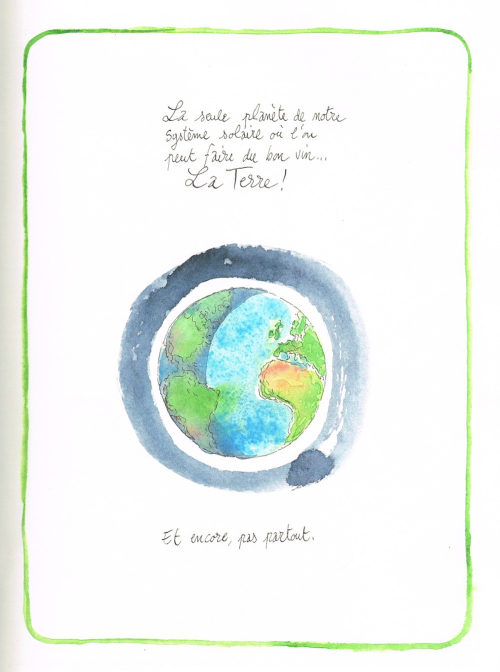 La seule planète de notre
système solaire où l'on
peut faire du bon vin...
La Terre!
Et encore, pas partout.